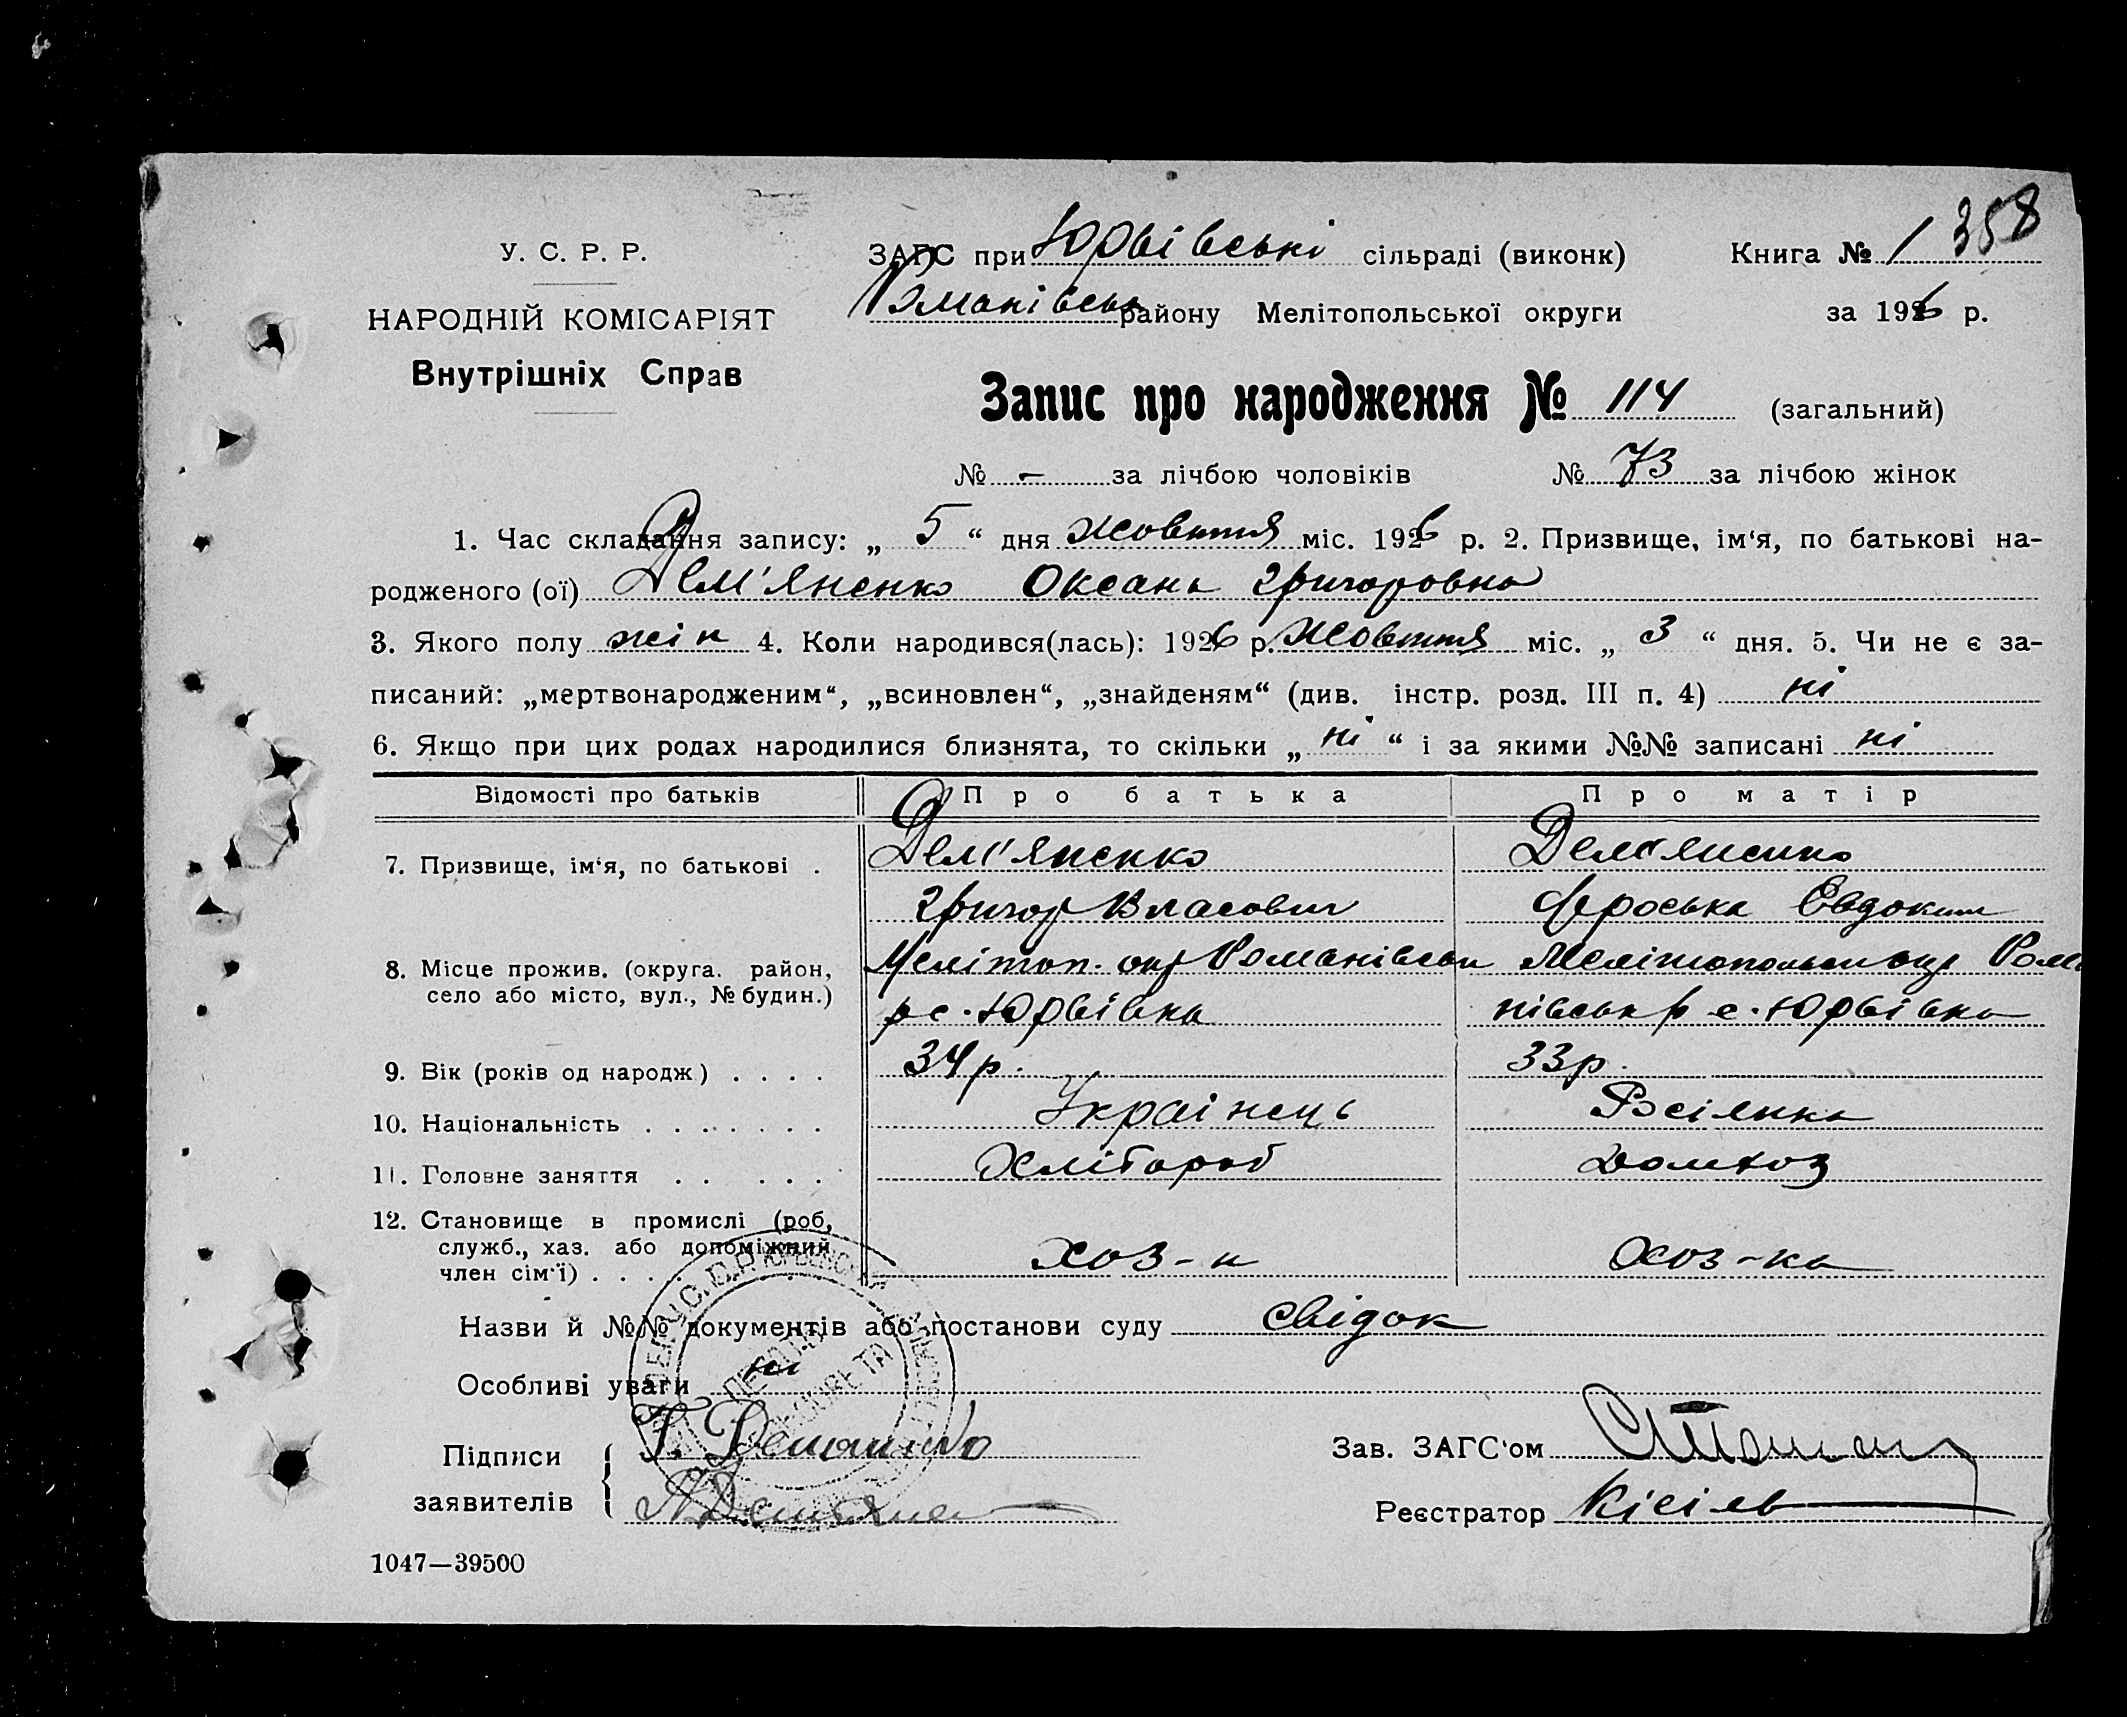 358
У. С. Р. Р.
ЗАГС при Юрвівські сільраді (виконк) Книга № 1
НАРОДНІЙ КОМІСАРІЯТ
Романівськ району Мелітопольської округи за 1926 р.
Внутрішніх Справ
Запис про народження № 114 (загальний)
№ - за лічбою чоловіків № 73 за лічбою жінок
1. Час складання запису: „ 5 “ дня жовття міс. 1926 р. 2. Призвище, ім‘я, по батькові на-
родженого (ої) Дем'яненко Оксана Григоровна
3. Якого полу жін 4. Коли народився(лась): 1926 р. жовття міс. „ 3 “ дня. 5. Чи не є за-
писаний: „мертвонародженим“, „всиновлен“, „знайденям“ (див. інстр. розд. III п. 4) ні
6. Якщо при цих родах народилися близнята, то скільки „ ні “ і за якими №№ записані ні
Відомості про батьків Про батька Про матір
7. Призвище, ім‘я, по батькові . Дем'яненко Дем'яненко
Григор Власович Фроська Овдоким
8. Місце прожив. (округа. район, Мелітоп. окр Романівськ Мелітопольськ окр Рома
село або місто, вул., № будин.) р с. Юрвівка нівськ р с. Юрвівка
9. Вік (років од народж) . . . . 34 р. 33 р.
10. Національність . . . . . . . Українець Росіянка
11. Головне заняття . . . . . Хлібороб Домхоз
12. Становище в промислі (роб,
служб., хаз. або допоміжний
член сім‘ї) . . . . хоз-н хоз-ка
Назви й №№ документів або постанови суду свідок
Особливі уваги ні
Підписи Г. Демяненко Зав. ЗАГС‘ом
заявителів Реєстратор Кісіль
1047—39500